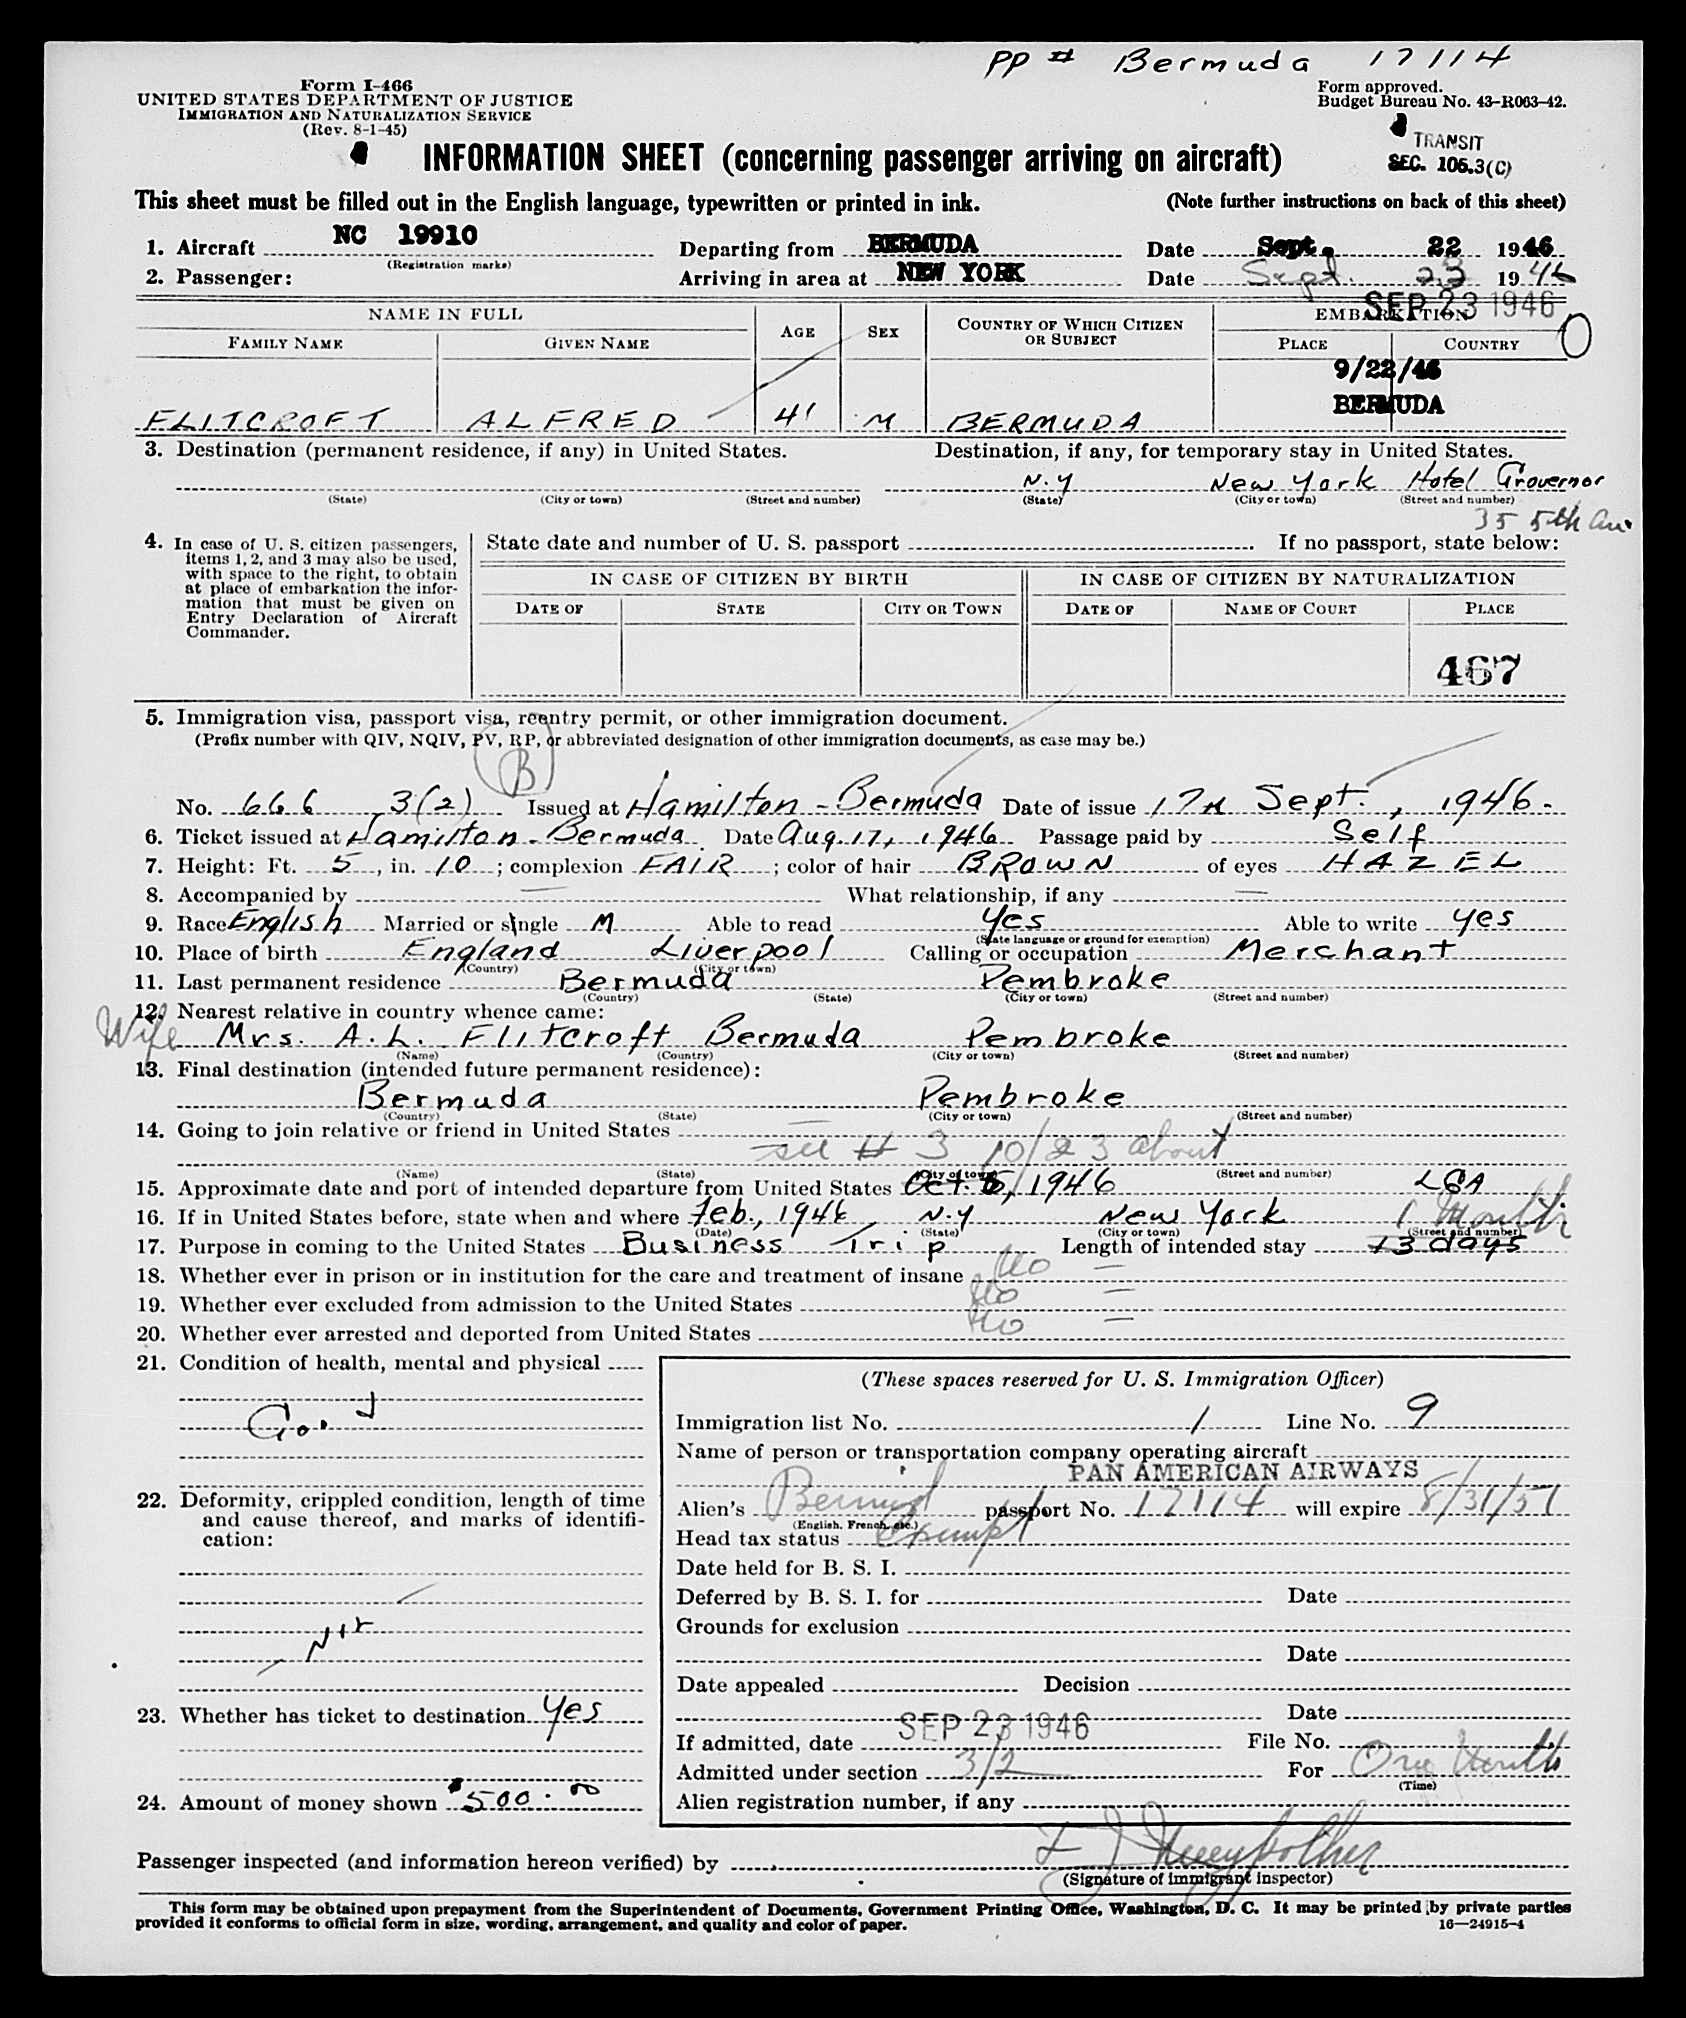 PP # Bermuda 17114
Form I-466
UNITED STATES DEPARTMENT OF JUSTICE
IMMIGRATION AND NATURALIZATION SERVICE
(Rev. 8-1-45)
Form approved.
Budget Bureau No. 43-R063-42.
TRANSIT
SEC. 105.3(C)
INFORMATION SHEET (concerning passenger arriving on aircraft)
This sheet must be filled out in the English language, typewritten or printed in ink. (Note further instructions on back of this sheet)
1. Aircraft NC 19910 Departing from BERMUDA Date Sept. 22 1946
(Registration marks)
2. Passenger: Arriving in area at NEW YORK Date Sept. 23 1946
SEP 23 1946
NAME IN FULL AGE SEX COUNTRY OF WHICH CITIZEN OR SUBJECT EMBARKATION
FAMILY NAME GIVEN NAME PLACE COUNTRY
9/22/46
BERMUDA
FLITCROFT ALFRED 41 M BERMUDA
3. Destination (permanent residence, if any) in United States. Destination, if any, for temporary stay in United States.
N.Y New York Hotel Grovernor
(State) (City or town) (Street and number) (State) (City or town) (Street and number)
35 5th Ave
4. In case of U. S. citizen passengers, items 1, 2, and 3 may also be used, with space to the right, to obtain at place of embarkation the information that must be given on Entry Declaration of Aircraft Commander.
State date and number of U. S. passport If no passport, state below:
IN CASE OF CITIZEN BY BIRTH IN CASE OF CITIZEN BY NATURALIZATION
DATE OF STATE CITY OR TOWN DATE OF NAME OF COURT PLACE
467
5. Immigration visa, passport visa, reentry permit, or other immigration document.
(Prefix number with QIV, NQIV, PV, RP, or abbreviated designation of other immigration documents, as case may be.)
(B)
No. 666 3(2) Issued at Hamilton - Bermuda Date of issue 17th Sept., 1946.
6. Ticket issued at Hamilton - Bermuda Date Aug. 17, 1946 Passage paid by Self
7. Height: Ft. 5, in. 10; complexion FAIR; color of hair BROWN of eyes HAZEL
8. Accompanied by — What relationship, if any —
9. Race English Married or single M Able to read Yes Able to write yes
(State language or ground for exemption)
10. Place of birth England Liverpool Calling or occupation Merchant
(Country) (City or town)
11. Last permanent residence Bermuda Pembroke
(Country) (State) (City or town) (Street and number)
12. Nearest relative in country whence came:
Wife Mrs. A. L. Flitcroft Bermuda Pembroke
(Name) (Country) (City or town) (Street and number)
13. Final destination (intended future permanent residence):
Bermuda Pembroke
(Country) (State) (City or town) (Street and number)
14. Going to join relative or friend in United States —
see # 3 10/23 about
(Name) (State) (City or town) (Street and number)
15. Approximate date and port of intended departure from United States Oct. 5, 1946 LGA
16. If in United States before, state when and where Feb., 1946 N.Y New York
(Date) (State) (City or town) (Street and number)
1 Month
17. Purpose in coming to the United States Business Trip Length of intended stay 13 days
18. Whether ever in prison or in institution for the care and treatment of insane No —
19. Whether ever excluded from admission to the United States No —
20. Whether ever arrested and deported from United States No —
21. Condition of health, mental and physical
Good
22. Deformity, crippled condition, length of time and cause thereof, and marks of identification:
Nil
23. Whether has ticket to destination Yes
24. Amount of money shown $500.00
(These spaces reserved for U. S. Immigration Officer)
Immigration list No. 1 Line No. 9
Name of person or transportation company operating aircraft
PAN AMERICAN AIRWAYS
Alien's Bermud passport No. 17114 will expire 8/31/51
(English, French, etc.)
Head tax status Exempt
Date held for B. S. I.
Deferred by B. S. I. for Date
Grounds for exclusion
Date
Date appealed Decision
Date
If admitted, date SEP 23 1946 File No.
Admitted under section 3/2 For One Month
(Time)
Alien registration number, if any
Passenger inspected (and information hereon verified) by
(Signature of immigrant inspector)
This form may be obtained upon prepayment from the Superintendent of Documents, Government Printing Office, Washington, D. C. It may be printed by private parties
provided it conforms to official form in size, wording, arrangement, and quality and color of paper. 16—24915-4